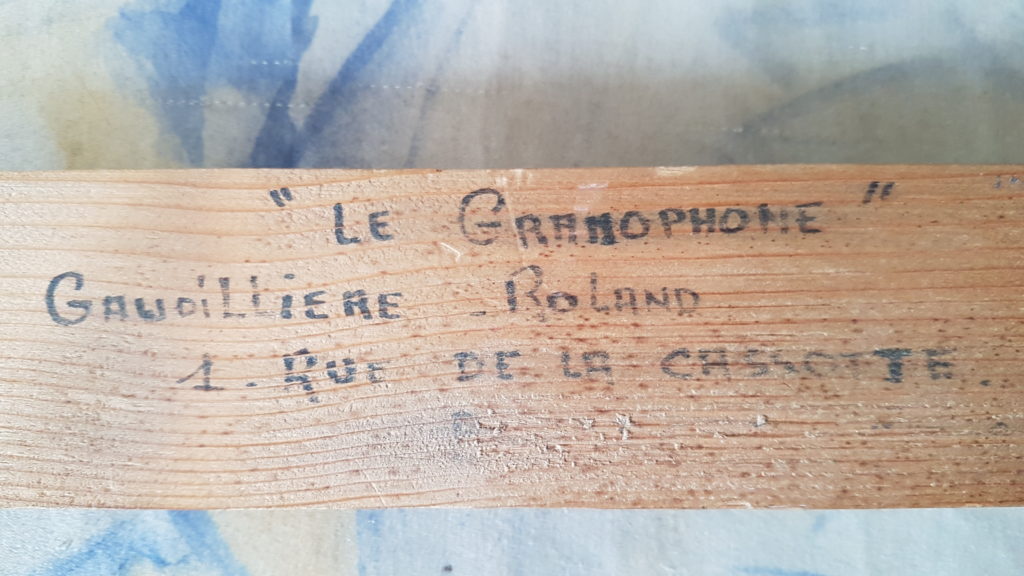 " LE GRAMOPHONE "
GAUDILLIERE _ ROLAND
1. RUE DE LA CASSOTTE.